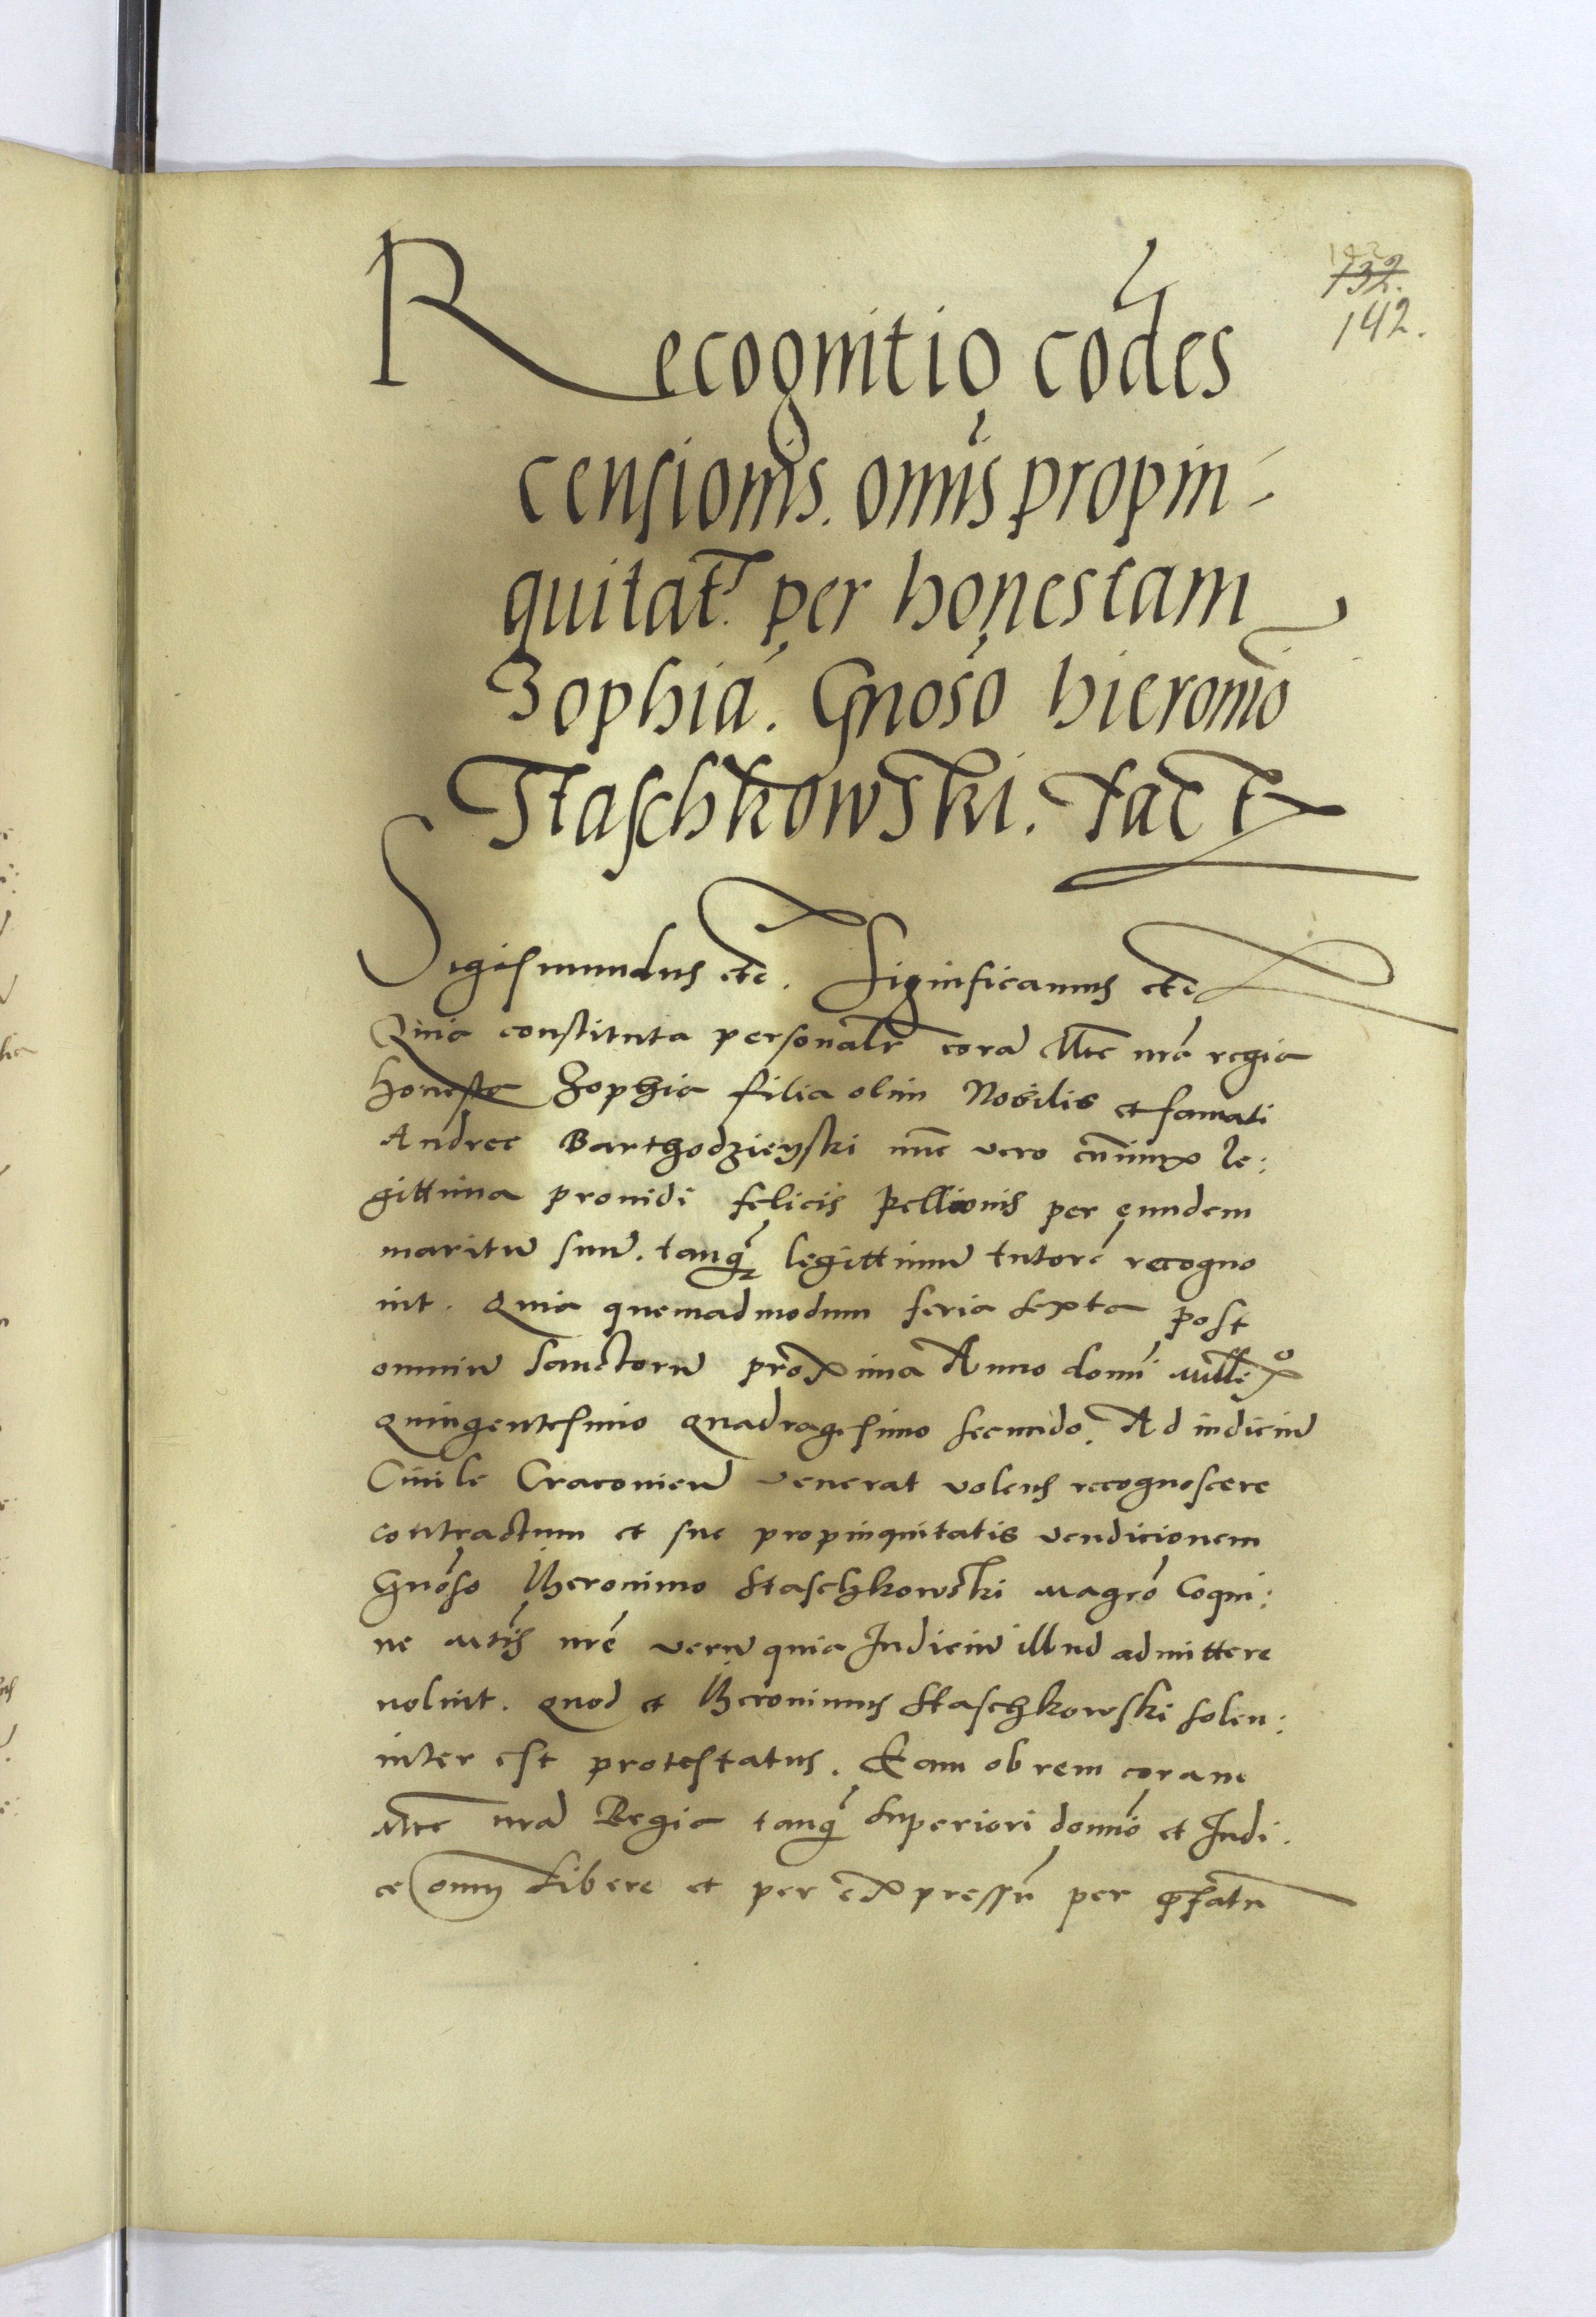 132.
142.
Recognitio cōdes
censionis. om̄is propin-
quitat̄. per honestam
Zophiā. Gnōso hieroniō
Staschkowski. fact
Sigismundus etc. Significamus etc
Quia constituta personalr̄ corā Mte nr̄a regia
honesta Zophia filia olim Nobilis et famati
Andree Barthodzieyski nūc vero cōniunx le:
gittima prouidi felicis Pellionis per eundem
maritū suū. tanq̄ legittimū tutorē recogno
uit. Quia quemadmodum feria sexta post
omniū Sanctorū proxima Anno domī mille̊
quingentesimo quadragesimo secundo. Ad iudiciū
Ciuile Cracovien̄ venerat volens recognoscere
contractum et sue propinquitatis vendicionem
Gnōso Iheronimo Staschkowski magrō Coqui:
ne Mtis nr̄e verū quia Iudiciū illud admittere
noluit. quod et Iheronimus Staschkowski solen:
niter est protestatus. Eam ob rem coram
Mte nr̄a Regia tanq̄ superiori domīo et Iudi.
ce om̄i libere et per expressū per p̄fatū